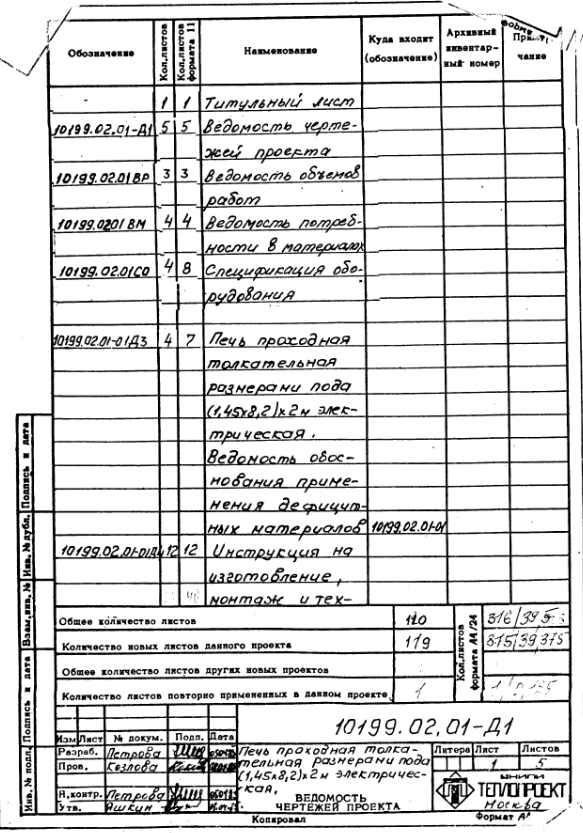 Обозначение Кол.листов Кол.листов формата 11 Наименование Куда входит (обозначение) Архивный инвентарный номер Приме- чание
1 1 Титульный лист
10199.02.01-Д1 5 5 Ведомость черте-
жей проекта
10199.02.01ВР 3 3 Ведомость объемов
работ
10199.0201ВМ 4 4 Ведомость потреб-
ности в материалах
10199.02.01СО 4 8 Спецификация обо-
рудования
10199.02.01-01Д3 4 7 Печь проходная
толкательная
размерами пода
(1,45х8,2)х2м элек-
трическая.
Ведомость обос-
нования приме-
нения дефицит-
ных материалов 10199.02.01-01
10199.02.01-01Д4 12 12 Инструкция на
изготовление,
монтаж и тех-
Общее количество листов 120
Количество новых листов данного проекта 119
Общее количество листов других новых проектов
Количество листов повторно примененных в данном проекте 1
Кол.листов формата А4/24
316/39,5
315/39,375
10199.02.01-Д1
Изм Лист № докум. Подп. Дата
Разраб. Петрова
Пров. Козлова
Н.контр. Петрова
Утв. Яшкин
Печь проходная толка-
тельная размерами пода
(1,45х8,2)х2м электричес-
кая.
ВЕДОМОСТЬ
ЧЕРТЕЖЕЙ ПРОЕКТА
Литера Лист Листов
1 5
ВНИПИ
ТЕПЛОПРОЕКТ
Москва
Копировал
Формат А4
Инв. № подл. Подпись и дата Взам.инв. № Инв. № дубл. Подпись и дата